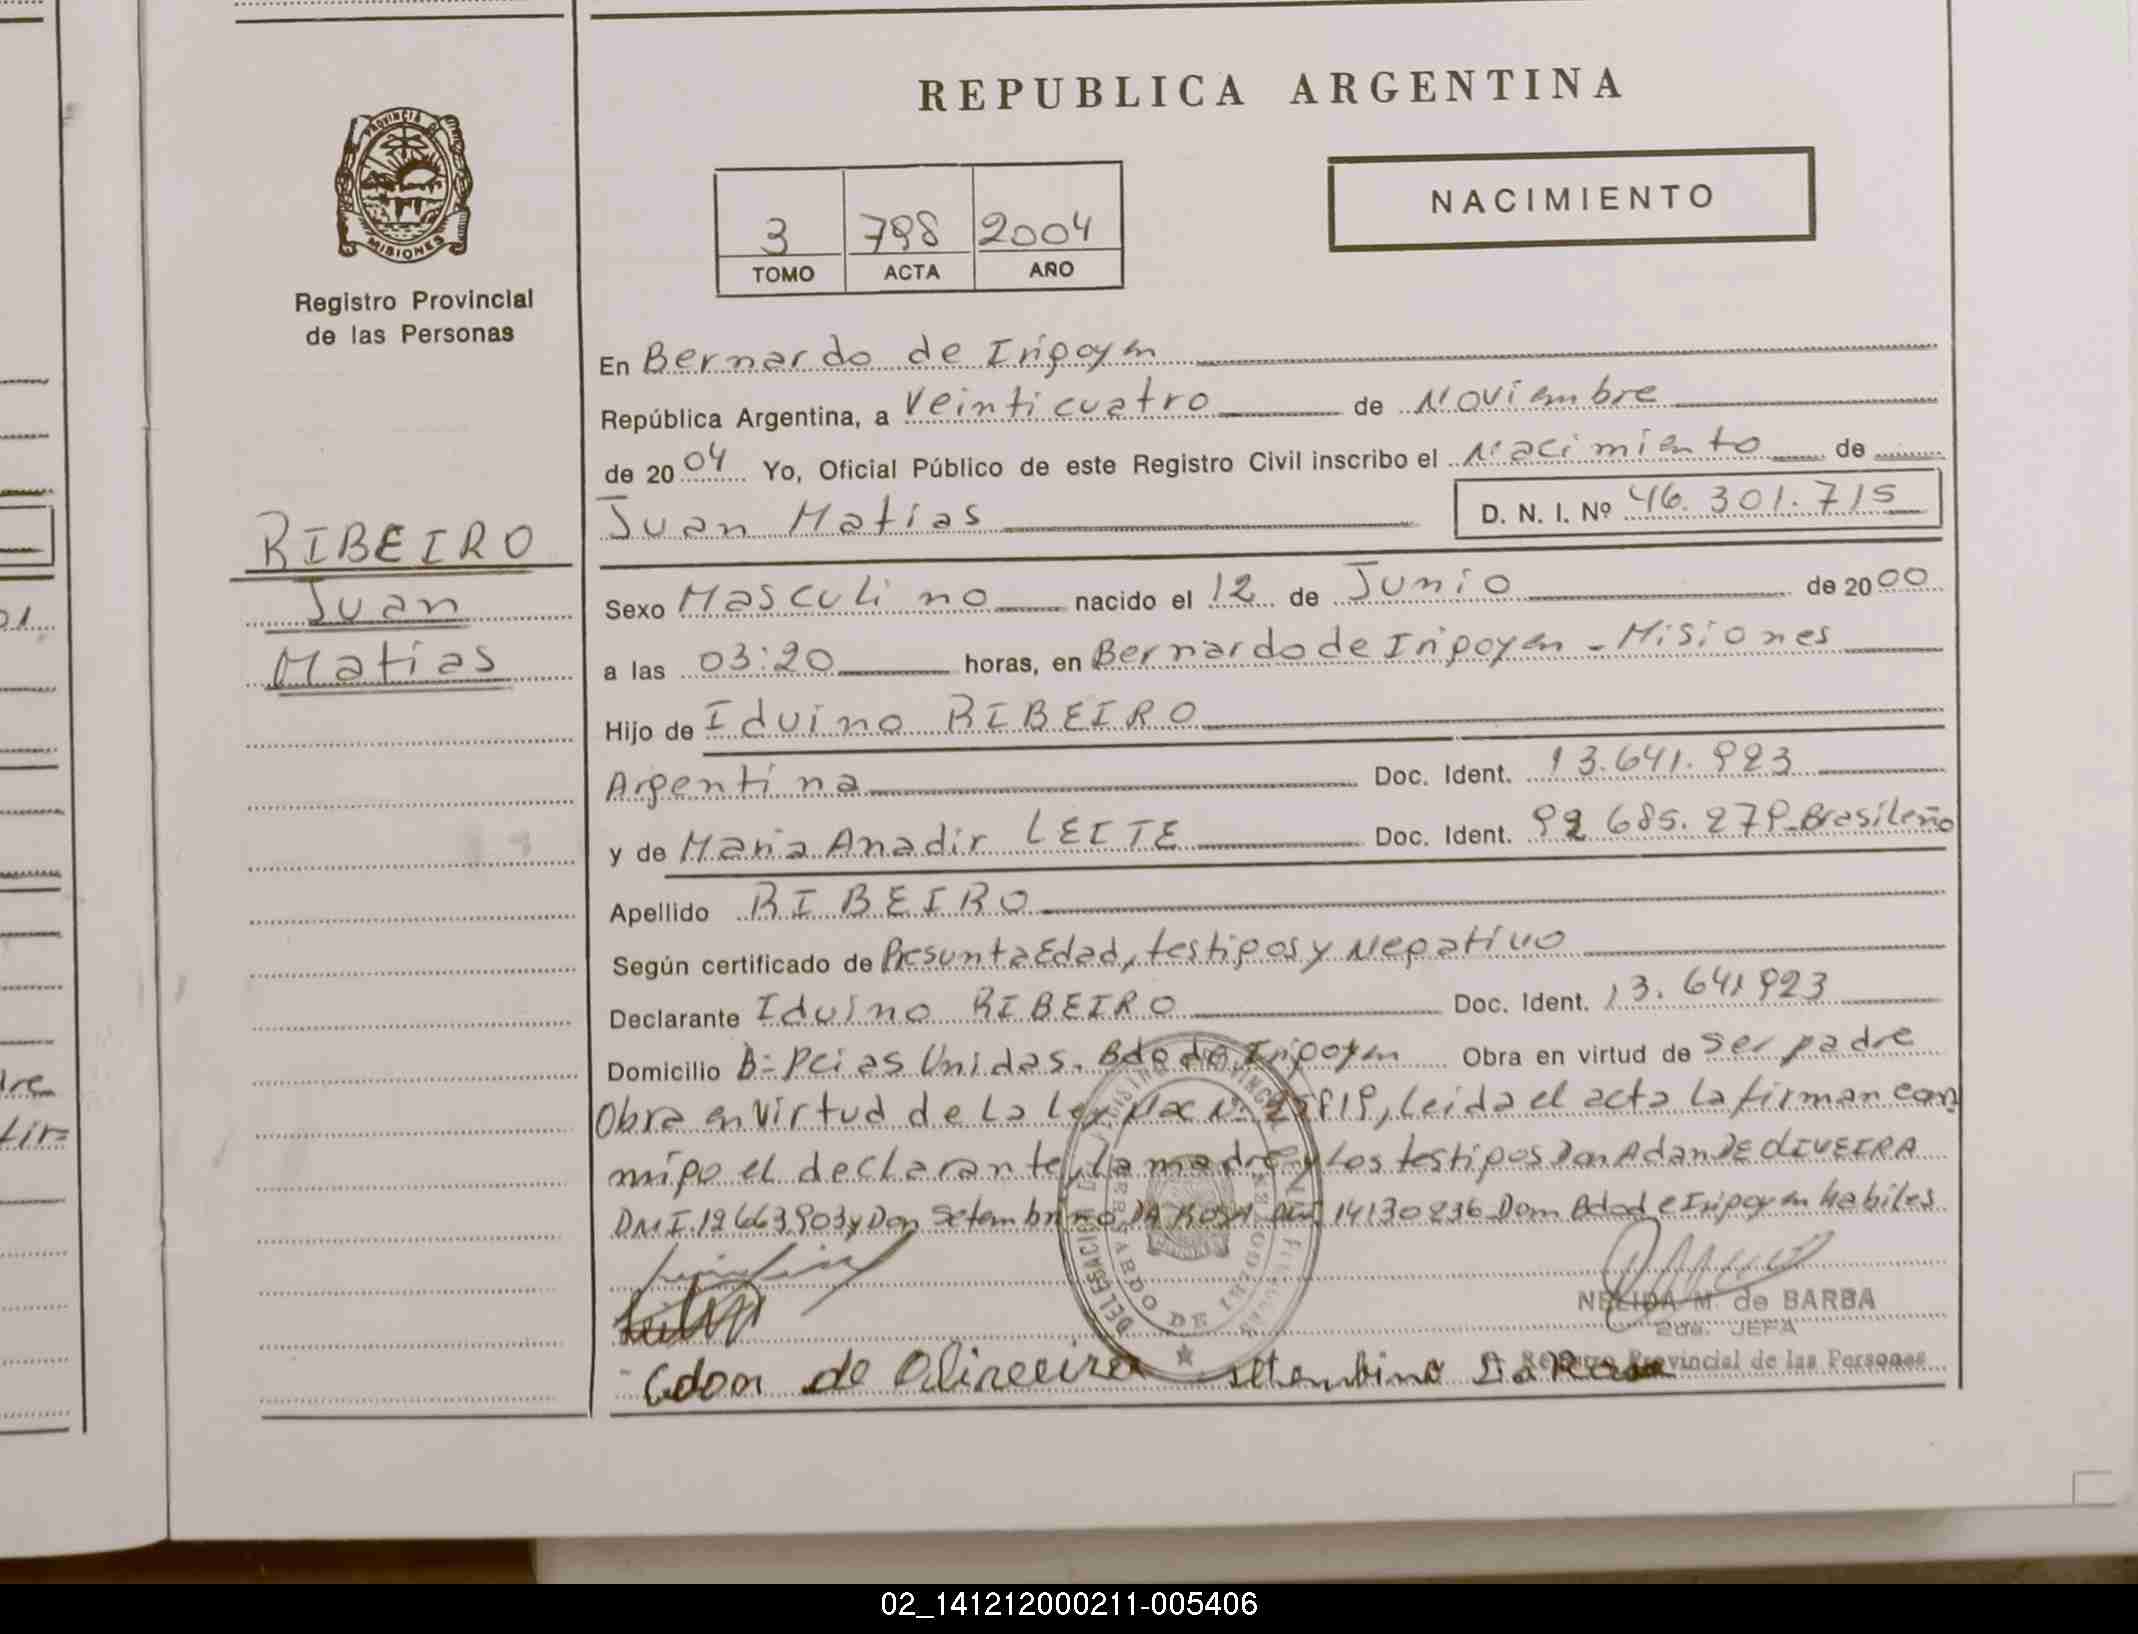 REPUBLICA ARGENTINA
PROVINCIA DE
MISIONES
Registro Provincial
de las Personas
3 798 2004
TOMO ACTA AÑO
NACIMIENTO
En Bernardo de Irigoyen
República Argentina, a Veinticuatro de Noviembre
de 2004 Yo, Oficial Público de este Registro Civil inscribo el Nacimiento de
Juan Matias D. N. I. Nº 46.301.715
RIBEIRO
Juan
Matias
Sexo Masculino nacido el 12 de Junio de 2000
a las 03:20 horas, en Bernardo de Irigoyen - Misiones
Hijo de Iduino RIBEIRO
Argentina Doc. Ident. 13.641.923
y de Maria Anadir LEITE Doc. Ident. 92 685.279 Brasileño
Apellido RIBEIRO
Según certificado de Presunta Edad, testigos y Negativo
Declarante Iduino RIBEIRO Doc. Ident. 13.641923
Domicilio B= Pcias Unidas. Bdo de Irigoyen Obra en virtud de Ser padre
Obra en Virtud de La Ley Nac Nº 25819, Leida el acta La firman con
migo el declarante, La madre y Los testigos Don Adan DE OLIVEIRA
DNI. 12663903 y Don Setembrino DA ROSA DNI 14130236 Dom Bdo de Irigoyen habiles
NELIDA M. de BARBA
2da. JEFA
Registro Provincial de las Personas
DELEGACION
BERNARDO DE IRIGOYEN
Adon de Oliveeira settembino Da Rosa
dre
fir=
01.
02_141212000211-005406